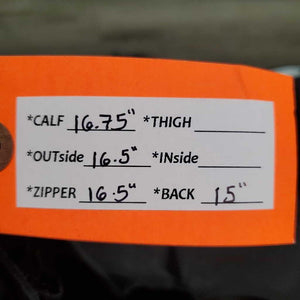 *CALF 16.75" *THIGH
*OUTside 16.5" *INside
*ZIPPER 16.5" *BACK 15"